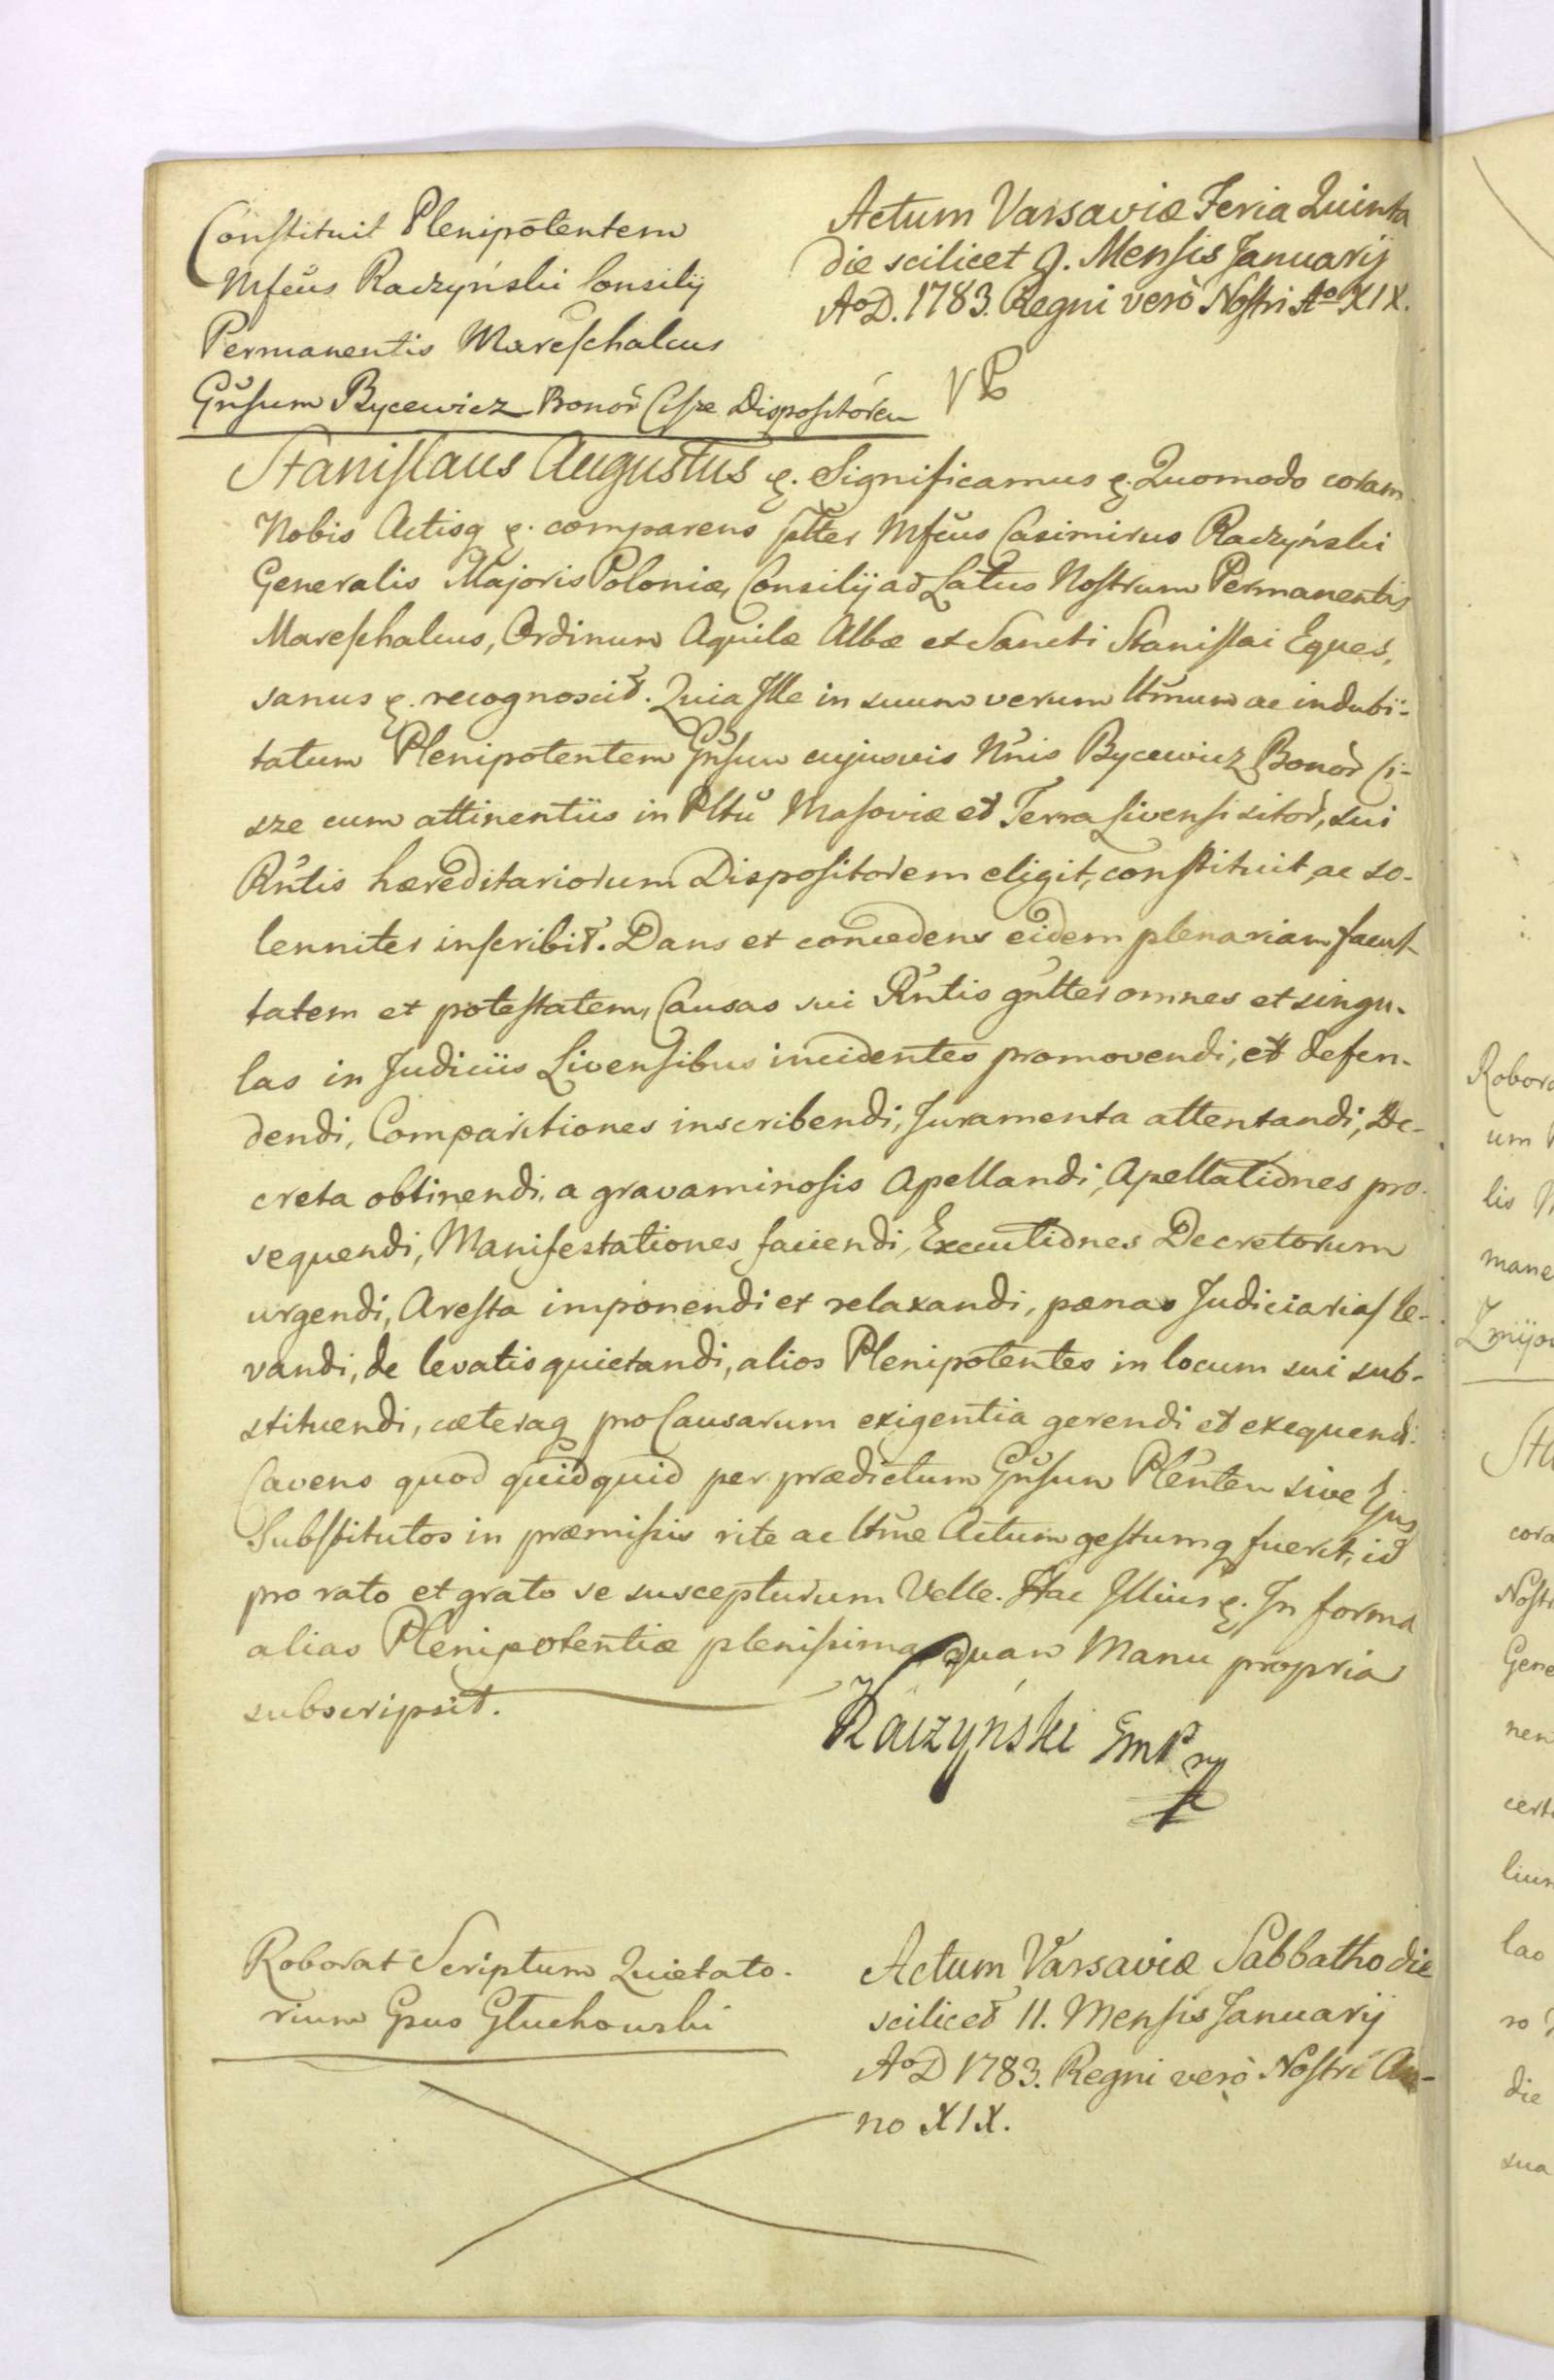 Constituit Plenipotentem
Mfcus Raczyński Consilij
Permanentis Mareschalcus
Gnsum Bycewicz Bonor Cisze Dispositorem
Actum Varsaviæ Feria Quinta
die scilicet 9. Mensis Januarij
AoD. 1783. Regni verò Nostri Ao XIX.
Stanislaus Augustus &. Significamus &. Quomodo coram
Nobis Actisq &. comparens pltter Mfcus Casimirus Raczyński
Generalis Majoris Poloniæ, Consilij ad Latus Nostrum Permanentis
Mareschalcus, Ordinum Aquilæ Albæ et Sancti Stanislai Eques,
sanus &. recognoscit. Quia Ille in suum verum ltmum ac indubi-
tatum Plenipotentem Gnsum cujusvis Nnis Bycewicz Bonor Ci-
sze cum attinentiis in Pltu Masoviæ et Terra Livensi sitor, sui
Rntis hæreditariorum Dispositorem eligit, constituit, ac so-
lenniter inscribit. Dans et concedens eidem plenariam facul-
tatem et potestatem, Causas sui Rntis gnlter omnes et singu-
las in Judiciis Livensibus incidentes promovendi, et defen-
dendi, Comparitiones inscribendi, Juramenta attentandi, De-
creta obtinendi, a gravaminosis Apellandi, Apellationes pro-
sequendi, Manifestationes faciendi, Executiones Decretorum
urgendi, Aresta imponendi et relaxandi, pænas Judiciarias le-
vandi, de levatis quietandi, alios Plenipotentes in locum sui sub-
stituendi, cæteraq pro Causarum exigentia gerendi et exequendi.
Cavens quod quidquid per prædictum Gnsum Plentem sive Ejus
Substitutos in præmissis rite ac ltme Actum gestumq fuerit, id
pro rato et grato se suscepturum Velle. Hac Illius &. In forma
alias Plenipotentiæ plenissima quam Manu propria
subscripsit.
Raczyński GmP mp
Roborat Scriptum Quietato-
rium Gsus Głuchowski
Actum Varsaviæ Sabbatho die
scilicet 11. Mensis Januarij
AoD 1783. Regni verò Nostri An-
no XIX.
Robora
um
lis
mane
Zmijow
Sta
cora
Nost
Gene
nen
cert
lium
lao
ro
die
sua